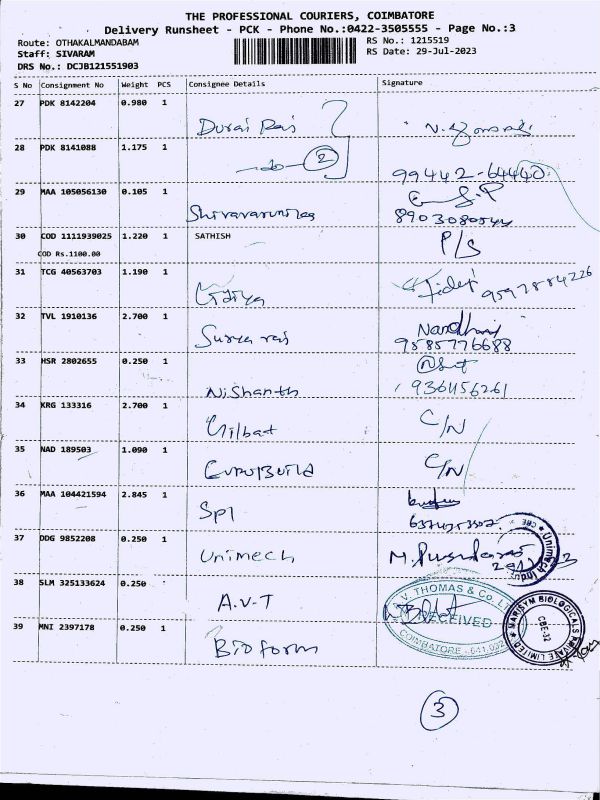 THE PROFESSIONAL COURIERS, COIMBATORE
Delivery Runsheet - PCK - Phone No.:0422-3505555 - Page No.:3
Route: OTHAKALMANDABAM
Staff: SIVARAM
DRS No.: DCJB121551903
RS No.: 1215519
RS Date: 29-Jul-2023
S No Consignment No Weight PCS Consignee Details Signature
27 PDK 8142204 0.980 1
Durai Raj
28 PDK 8141088 1.175 1
-do- 2
99442-64440
29 MAA 105056130 0.105 1
8903080544
30 COD 1111939025 1.220 1 SATHISH P/S
COD Rs.1100.00
31 TCG 40563703 1.190 1
9597884226
32 TVL 1910136 2.700 1
Surya raj Nandhini
9585776688
33 HSR 2802655 0.250 1
Nishanth 9361156261
34 KRG 133316 2.700 1
Gilbat C/N
35 NAD 189503 1.090 1
C/N
36 MAA 104421594 2.845 1
Spl
37 DDG 9852208 0.250 1
Unimech
38 SLM 325133624 0.250
A.V.T
V. THOMAS & Co.
RECEIVED
COIMBATORE - 641 032
39 MNI 2397178 0.250 1
Bioform
MARSYM BIOLOGICALS PRIVATE LIMITED
CBE-32
3